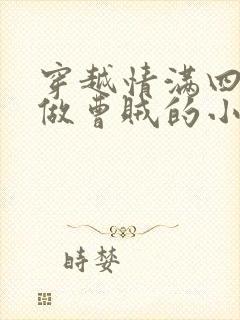 穿越情满四
做曹贼的小
時婪